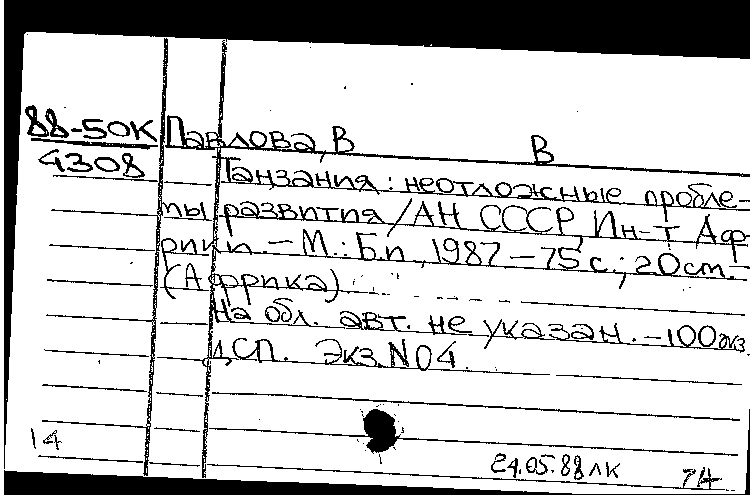 88-50К Павлова, В В
4308 Танзания: неотложные пробле-
мы развития /АН СССР, Ин-т Аф-
рики. - М.: Б.и., 1987. - 75 с.; 20 см. -
(Африка).
На обл. авт. не указан. - 100 экз.
ДСП. Экз. N 04.
14
24.05.88 ЛК